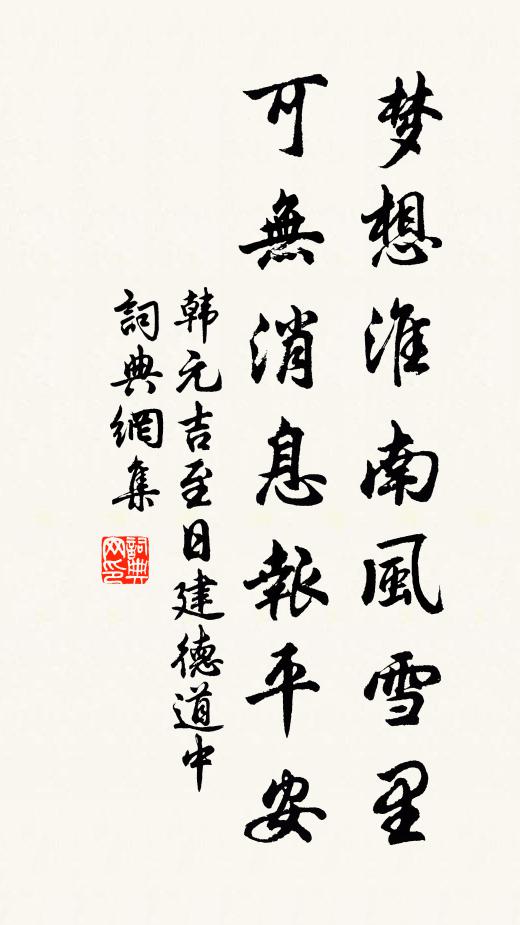 梦想淮南風雪里
可無消息報平安
韩元吉至日建德道中
詞典網集
詞典网印